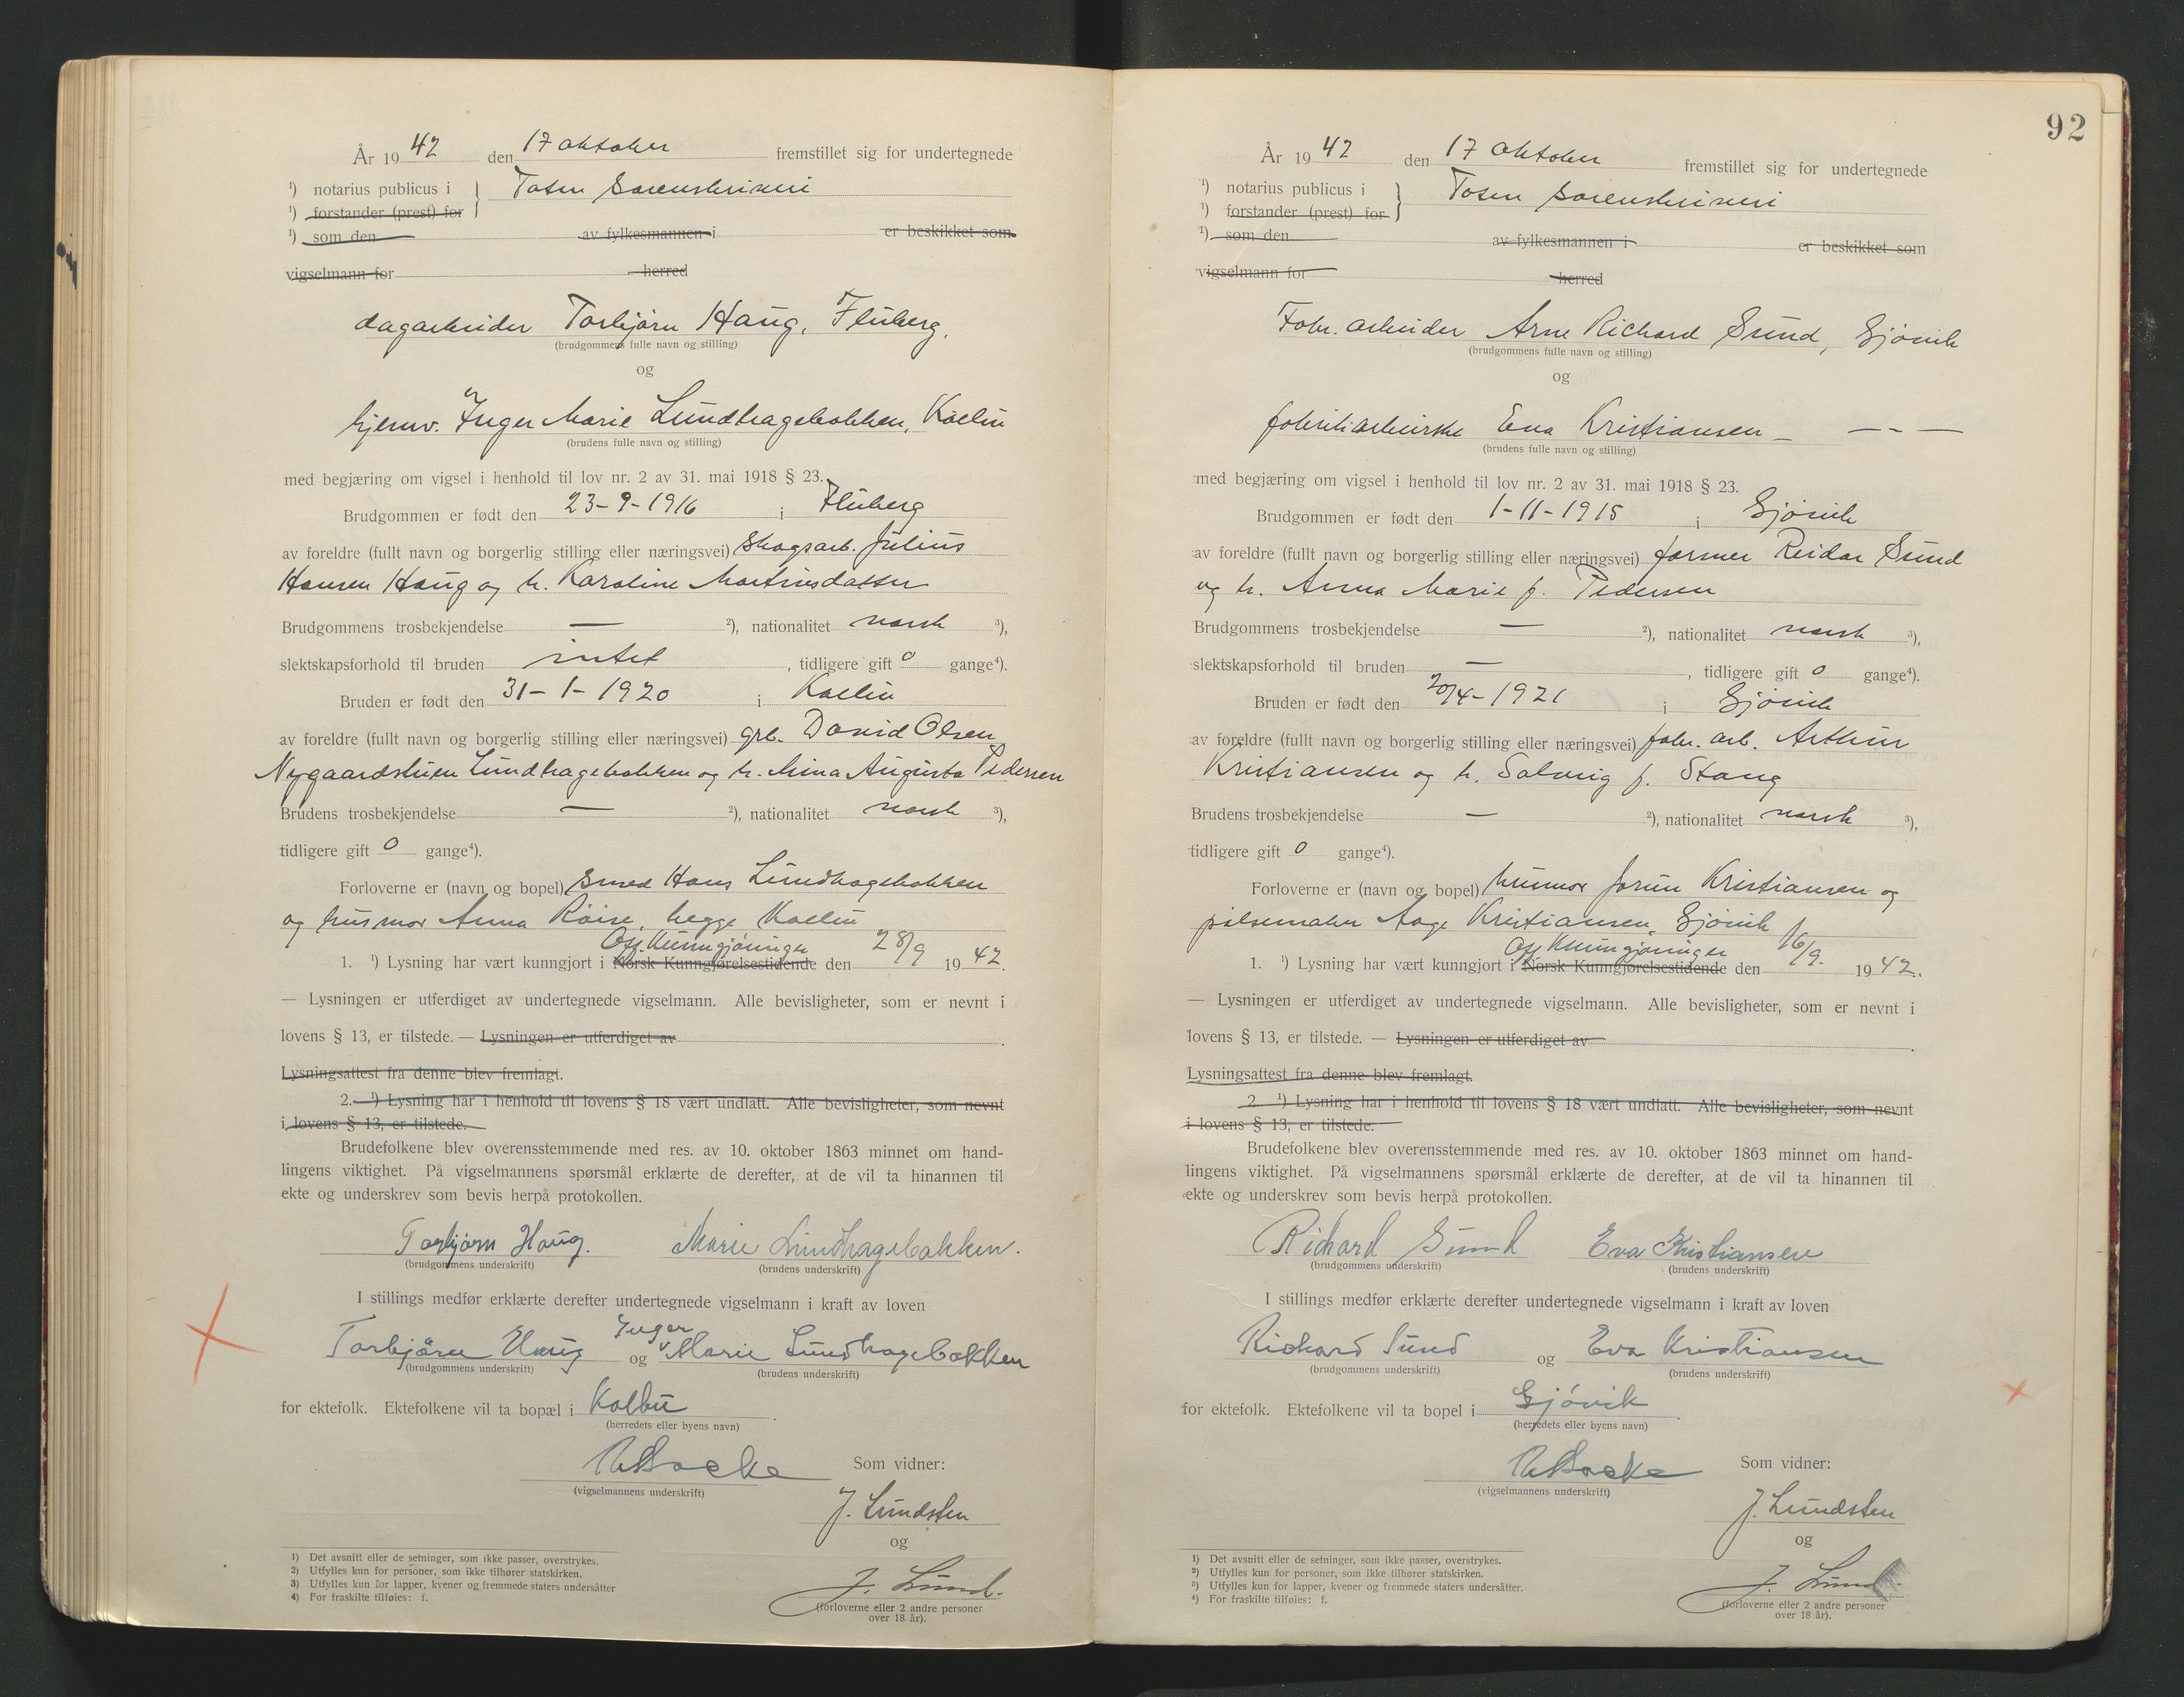 År 19 42 den 17 oktober fremstillet sig for undertegnede
¹) notarius publicus i } Toten Sorenskriveri
¹) forstander (prest) for
¹) som den av fylkesmannen i er beskikket som
vigselmann for herred
dagarbeider Torbjörn Haug, Fluberg,
(brudgommens fulle navn og stilling)
og
hjemv. Inger Marie Lundhagebakken, Kolbu
(brudens fulle navn og stilling)
med begjæring om vigsel i henhold til lov nr. 2 av 31. mai 1918 § 23.
Brudgommen er født den 23-9-1916 i Fluberg
av foreldre (fullt navn og borgerlig stilling eller næringsvei) skogsarb. Julius
Hansen Haug og h. Karoline Martinsdatter
Brudgommens trosbekjendelse — ²), nationalitet norsk ³),
slektskapsforhold til bruden intet , tidligere gift 0 gange⁴).
Bruden er født den 31-1-1920 i Kolbu
av foreldre (fullt navn og borgerlig stilling eller næringsvei) grb. David Olsen
Nygaardstuen Lundhagebakken og h. Mina Augusta Pedersen
Brudens trosbekjendelse — ²), nationalitet norsk ³),
tidligere gift 0 gange⁴).
Forloverne er (navn og bopel) smed Hans Lundhagebakken
og husmor Anna Röise, begge Kolbu
Off. Kunngjöringer
1. ¹) Lysning har vært kunngjort i Norsk Kunngjørelsestidende den 28/9 19 42.
— Lysningen er utferdiget av undertegnede vigselmann. Alle bevisligheter, som er nevnt i
lovens § 13, er tilstede. — Lysningen er utferdiget av .
Lysningsattest fra denne blev fremlagt.
2. ¹) Lysning har i henhold til lovens § 18 vært undlatt. Alle bevisligheter, som nevnt
i lovens § 13, er tilstede.
Brudefolkene blev overensstemmende med res. av 10. oktober 1863 minnet om hand-
lingens viktighet. På vigselmannens spørsmål erklærte de derefter, at de vil ta hinannen til
ekte og underskrev som bevis herpå protokollen.
Torbjørn Haug. Marie Lundhagebakken.
(brudgommens underskrift) (brudens underskrift)
I stillings medfør erklærte derefter undertegnede vigselmann i kraft av loven
Inger
Torbjörn Haug og Marie Lundhagebakken
(brudgommens underskrift) (brudens underskrift)
for ektefolk. Ektefolkene vil ta bopæl i Kolbu .
(herredets eller byens navn)
Som vidner:
(vigselmannens underskrift)
J. Lundsten
og
J. Lund.
(forloverne eller 2 andre personer
over 18 år).
1) Det avsnitt eller de setninger, som ikke passer, overstrykes.
2) Utfylles kun for personer, som ikke tilhører statskirken.
3) Utfylles kun for lapper, kvener og fremmede staters undersåtter
4) For fraskilte tilføies: f.
92
År 19 42 den 17 oktober fremstillet sig for undertegnede
¹) notarius publicus i } Toten sorenskriveri
¹) forstander (prest) for
¹) som den av fylkesmannen i er beskikket som
vigselmann for herred
Fabr. arbeider Arne Richard Sund, Gjövik
(brudgommens fulle navn og stilling)
og
fabrikkarbeiderske Eva Kristiansen — — - —
(brudens fulle navn og stilling)
med begjæring om vigsel i henhold til lov nr. 2 av 31. mai 1918 § 23.
Brudgommen er født den 1-11-1915 i Gjövik
av foreldre (fullt navn og borgerlig stilling eller næringsvei) former Reidar Sund
og h. Anna Marie f. Pedersen
Brudgommens trosbekjendelse — ²), nationalitet norsk ³),
slektskapsforhold til bruden — , tidligere gift 0 gange⁴).
Bruden er født den 20/4-1921 i Gjövik
av foreldre (fullt navn og borgerlig stilling eller næringsvei) fabr. arb. Arthur
Kristiansen og h. Solveig f. Stang
Brudens trosbekjendelse — ²), nationalitet norsk ³),
tidligere gift 0 gange⁴).
Forloverne er (navn og bopel) husmor Jorun Kristiansen og
pölsemaker Aage Kristiansen, Gjövik
Off Kunngjöringer
1. ¹) Lysning har vært kunngjort i Norsk Kunngjørelsestidende den 16/9. 19 42.
— Lysningen er utferdiget av undertegnede vigselmann. Alle bevisligheter, som er nevnt i
lovens § 13, er tilstede. — Lysningen er utferdiget av .
Lysningsattest fra denne blev fremlagt.
2. ¹) Lysning har i henhold til lovens § 18 vært undlatt. Alle bevisligheter, som nevnt
i lovens § 13, er tilstede.
Brudefolkene blev overensstemmende med res. av 10. oktober 1863 minnet om hand-
lingens viktighet. På vigselmannens spørsmål erklærte de derefter, at de vil ta hinannen til
ekte og underskrev som bevis herpå protokollen.
Richard Sund Eva Kristiansen
(brudgommens underskrift) (brudens underskrift)
I stillings medfør erklærte derefter undertegnede vigselmann i kraft av loven
Richard Sund og Eva Kristiansen
(brudgommens underskrift) (brudens underskrift)
for ektefolk. Ektefolkene vil ta bopel i Gjövik .
(herredets eller byens navn)
Som vidner:
(vigselmannens underskrift)
J. Lundsten
og
J. Lund.
(forloverne eller 2 andre personer
over 18 år).
¹) Det avsnitt eller de setninger, som ikke passer, overstrykes.
²) Utfylles kun for personer, som ikke tilhører statskirken.
³) Utfylles kun for lapper, kvener og fremmede staters undersåtter.
⁴) For fraskilte tilføies: f.